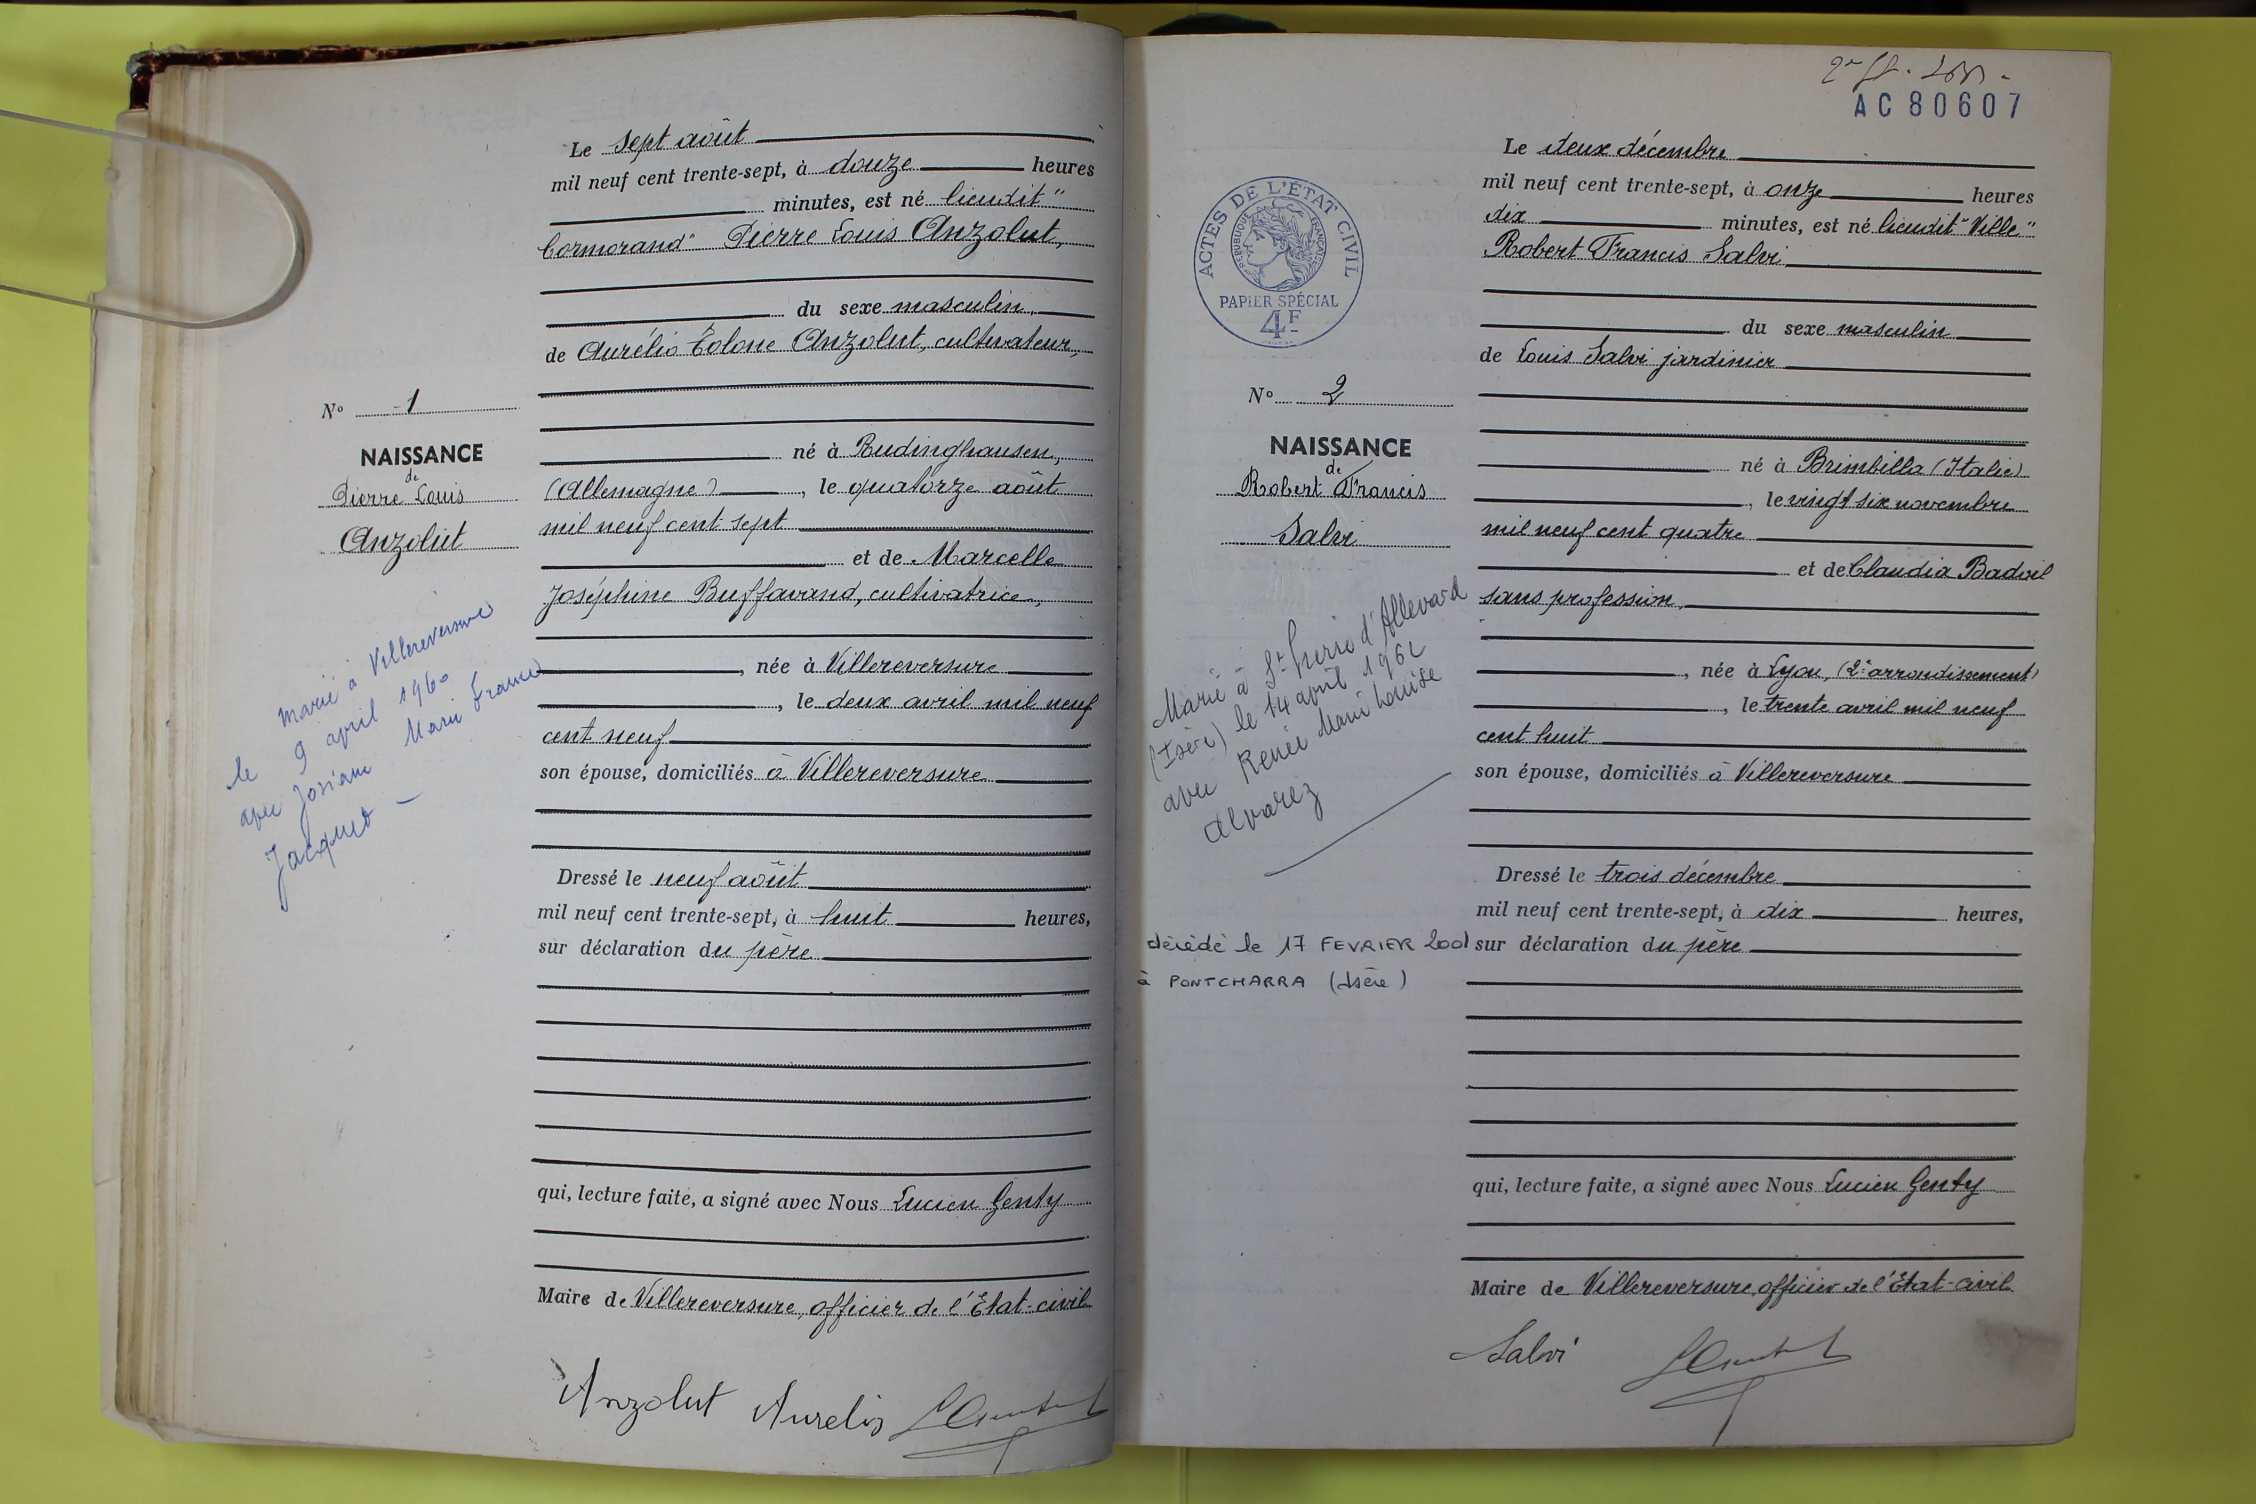 Le sept août
mil neuf cent trente-sept, à douze heures
minutes, est né lieudit "
Cormorand" Pierre Louis Anzolut,
du sexe masculin,
de Aurélio Colone Anzolut, cultivateur,
né à Rudinghausen,
(Allemagne), le quatorze août
mil neuf cent sept
et de Marcelle
Joséphine Buffavand, cultivatrice,
, née à Villereversure
, le deux avril mil neuf
cent neuf
son épouse, domiciliés à Villereversure
Dressé le neuf août
mil neuf cent trente-sept, à huit heures,
sur déclaration du père
qui, lecture faite, a signé avec Nous Lucien Genty
Maire de Villereversure, officier de l'Etat-civil
Anzolut Aurelio
No 1
NAISSANCE
de
Pierre Louis
Anzolut
marié à Villereversure
le 9 april 1960
avec Josiane Marie France
Jacquet -
AC 80607
ACTES DE L'ÉTAT CIVIL
RÉPUBLIQUE FRANÇAISE
PAPIER SPÉCIAL
4F
No 2
NAISSANCE
de
Robert Francis
Salvi
Marié à St Pierre d'Allevard
(Isère) le 14 april 1962
avec Renée Marie Louise
Alvarez
décédé le 17 FEVRIER 2001
à PONTCHARRA (Isère)
Le deux décembre
mil neuf cent trente-sept, à onze heures
dix minutes, est né lieudit "Ville"
Robert Francis Salvi
du sexe masculin
de Louis Salvi jardinier
né à Brimbilla (Italie)
, le vingt six novembre
mil neuf cent quatre
et de Claudia Badoil
sans profession,
, née à Lyon, (2e arrondissement)
, le trente avril mil neuf
cent huit
son épouse, domiciliés à Villereversure
Dressé le trois décembre
mil neuf cent trente-sept, à dix heures,
sur déclaration du père
qui, lecture faite, a signé avec Nous Lucien Genty
Maire de Villereversure, officier de l'Etat-civil
Salvi